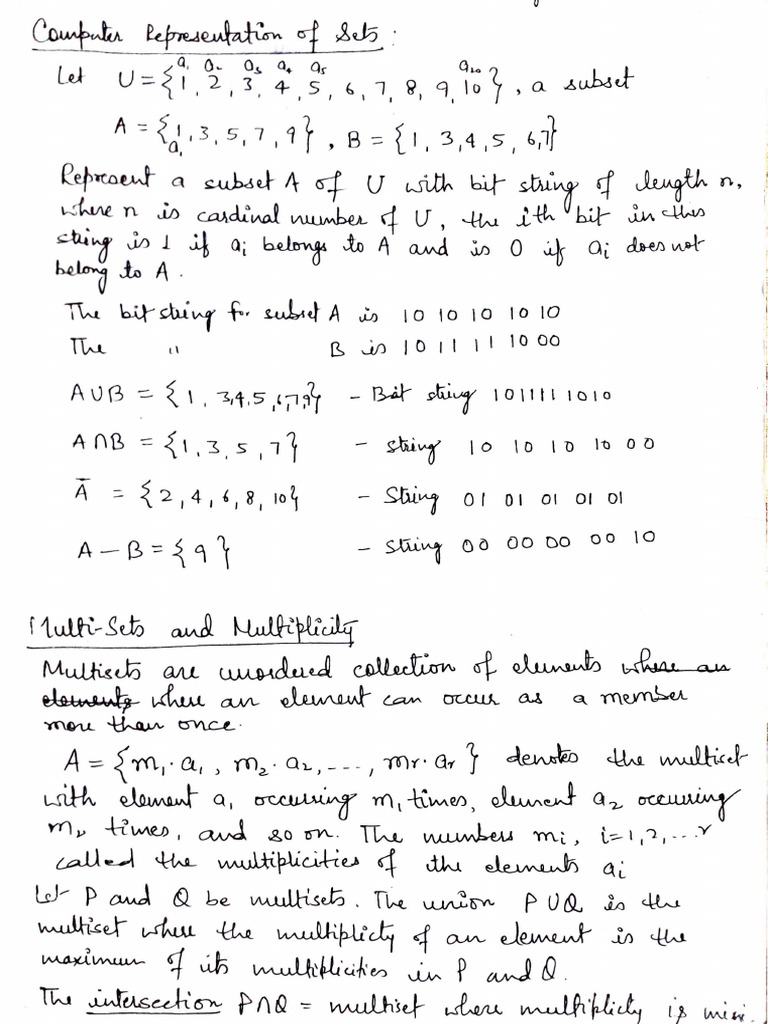 Computer Representation of Sets :
a₁ a₂ a₃ a₄ a₅ a₁₀
Let U = {1, 2, 3, 4, 5, 6, 7, 8, 9, 10}, a subset
A = {1, 3, 5, 7, 9}, B = {1, 3, 4, 5, 6, 7}
a₁
Represent a subset A of U with bit string of length n,
where n is cardinal number of U, the ith bit in this
string is 1 if aᵢ belongs to A and is 0 if aᵢ does not
belong to A.
The bit string for subset A is 10 10 10 10 10
The " B is 10 11 11 10 00
A∪B = {1, 3,4,5,6,7,9} - Bit string 101111 1010
A∩B = {1, 3, 5, 7} - string 10 10 10 10 00
Ā = {2, 4, 6, 8, 10} - String 01 01 01 01 01
A — B = {9} - string 00 00 00 00 10
Multi-Sets and Multiplicity
Multisets are unordered collection of elements where an
elements where an element can occur as a member
more than once.
A = {m₁·a₁, m₂·a₂, ..., mr·ar} denotes the multiset
with element a₁ occuring m₁ times, element a₂ occuring
m₂ times, and so on. The numbers mᵢ, i=1,2,...r
called the multiplicities of the elements aᵢ
Let P and Q be multisets. The union P∪Q is the
multiset where the multiplicty of an element is the
maximum of its multiplicities in P and Q.
The intersection P∩Q = multiset where multiplicty is mini.